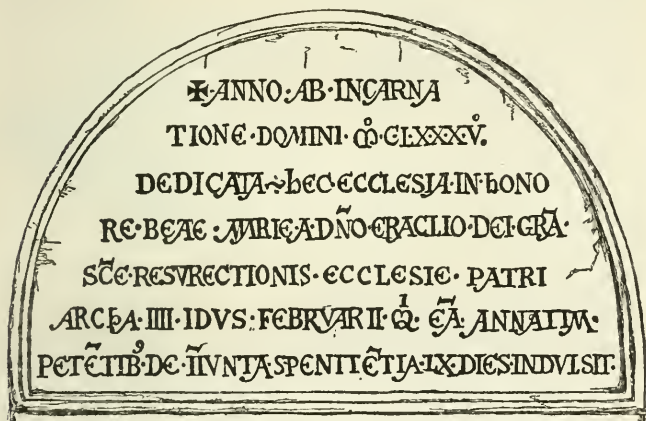 ✠·ANNO·AB·INCARNA
TIONE·DOMINI·M̊·CLXXXV̊.
DEDICATA~hEC·ECCLESIA·IN·hONO
RE·BEAE:MARIE·A·DÑO·ERACLIO·DEI·GRÃ·
SC̃E·RESVRECTIONIS·ECCLESIE·PATRI
ARChA·IIII·IDVS:FEBRVARII·Qͥ·EÃ:ANNATIM·
PETẼTIB᾿·DE·IĨVNTA·SPENTI·ẼTIA·LX·DIES·INDVLSIT·